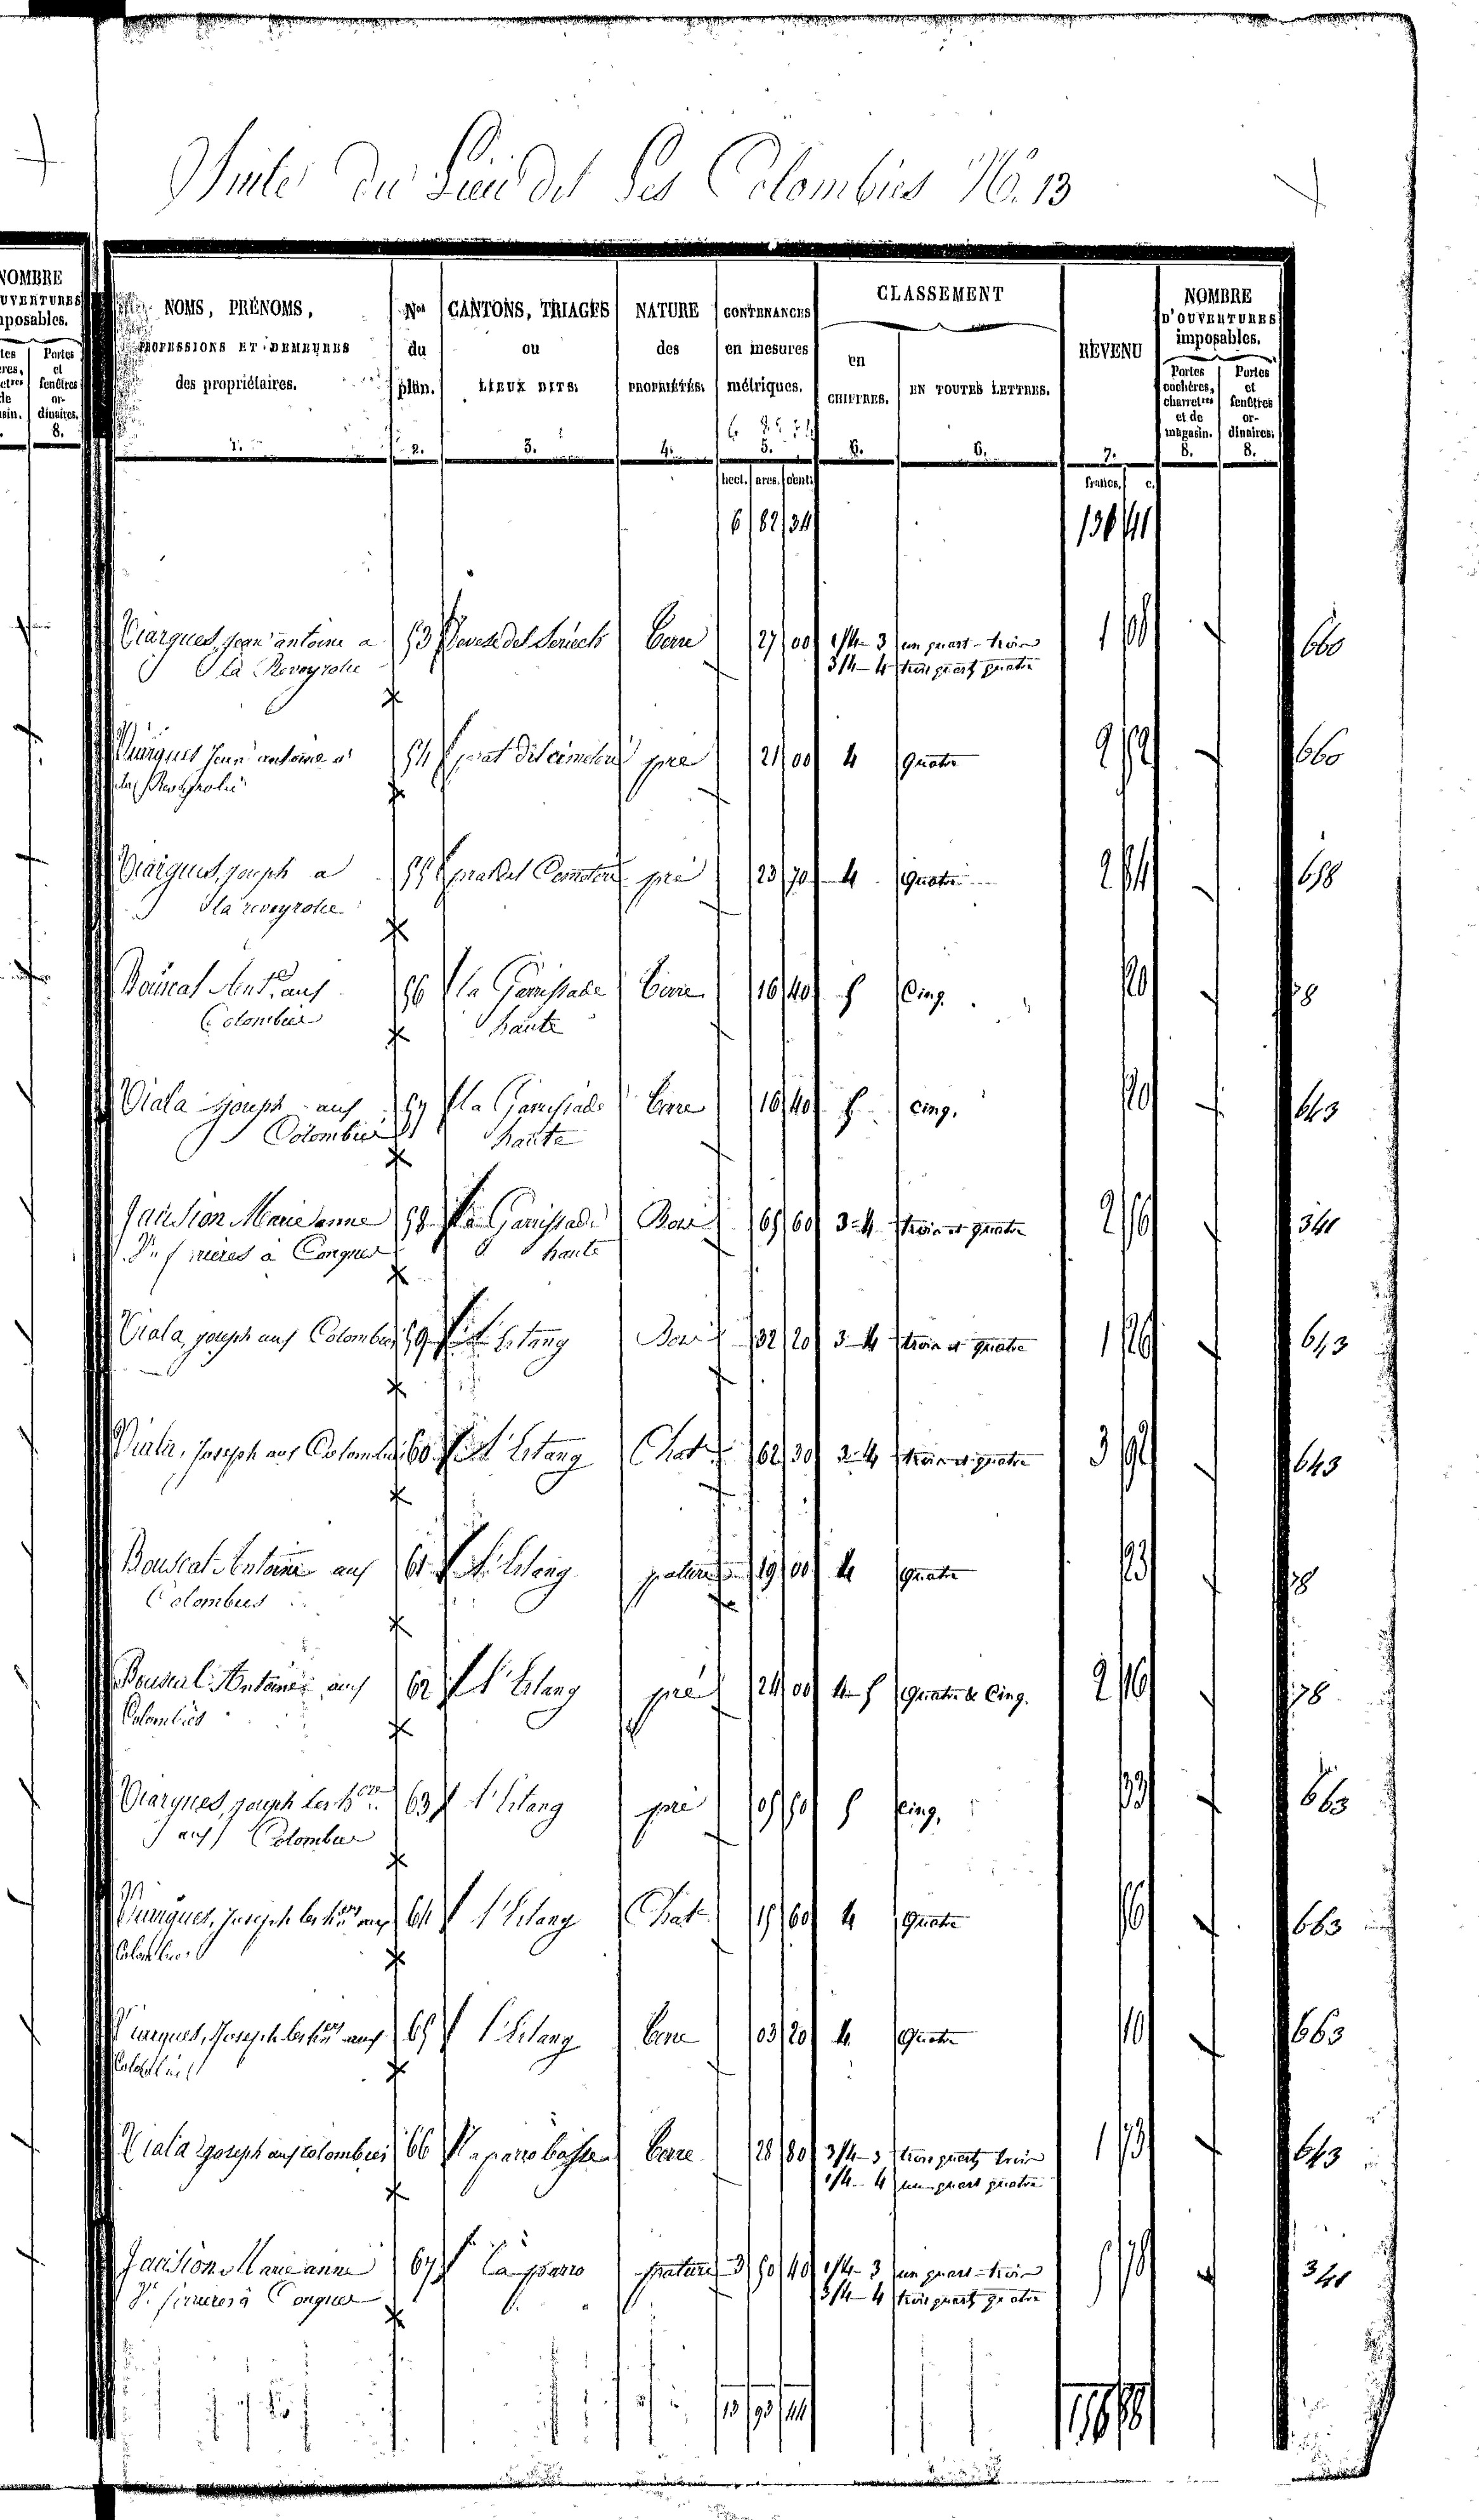 Suite du Lieu dit Les Colombiés No. 13
NOMS, PRÉNOMS, PROFESSIONS ET DEMEURES des propriétaires. 1.
Nos du plan. 2.
CANTONS, TRIAGES ou LIEUX DITS. 3.
NATURE des PROPRIÉTÉS. 4.
CONTENANCES en mesures métriques. 5.
CLASSEMENT
en CHIFFRES. 6.
EN TOUTES LETTRES. 6.
REVENU 7.
NOMBRE D'OUVERTURES imposables.
Portes cochères, charretres et de magasin. 8.
Portes et fenêtres ordinaires. 8.
hect. ares. cent. francs. c.
6 82 34 136 41
Viarques, Jean antoine a 53 27 00 1/4-3 un quart - trois 1 660
la Reveyrolie 3/4-4 trois quarts quatre
Viarques Jean antoine a 54 prat del cimetere pré 21 00 4 Quatre 2 52 660
la Reveyrolie
Viarques, Joseph a 55 prat del Cemetere pré 23 70 4 Quatre 2 84 658
la reveyrolie
Bouscat Ant. aux 56 la Garrissade 16 40 5 Cinq. 20 78
Colombiés haute
Viala Joseph aux 57 la Garrissade 16 40 5 Cinq. 20 643
Colombiés haute
Marie anne 58 la Garrissade Bois 65 60 3-4 trois et quatre 2 56 341
à Conques haute
Viala, Joseph aux Colombiés 59 l'Etang Bois 32 20 3-4 trois et quatre 1 26 643
Viala, Joseph aux Colombiés 60 l'Etang Chat. 62 30 3-4 trois et quatre 3 92 643
Bouscat Antoine aux 61 l'Etang pature 19 00 4 Quatre 23 78
Colombiés
Bouscat Antoine aux 62 l'Etang pré 24 00 4-5 Quatre & Cinq. 2 16 78
Colombiés
Viarques, Joseph 63 l'Etang pré 05 50 5 Cinq. 33 663
aux Colombiés
Viarques, Joseph aux 64 l'Etang Chat. 15 60 4 Quatre 56 663
Colombiés
Viarques, Joseph aux 65 l'Etang 03 20 4 Quatre 10 663
Colombiés
Viala Joseph aux colombiés 66 La parro basse 28 80 3/4-3 trois quarts trois 1 73 643
1/4-4 un quart quatre
Marie anne 67 La parro pature 3 50 40 1/4-3 un quart - trois 5 78 341
à Conques 3/4-4 trois quarts quatre